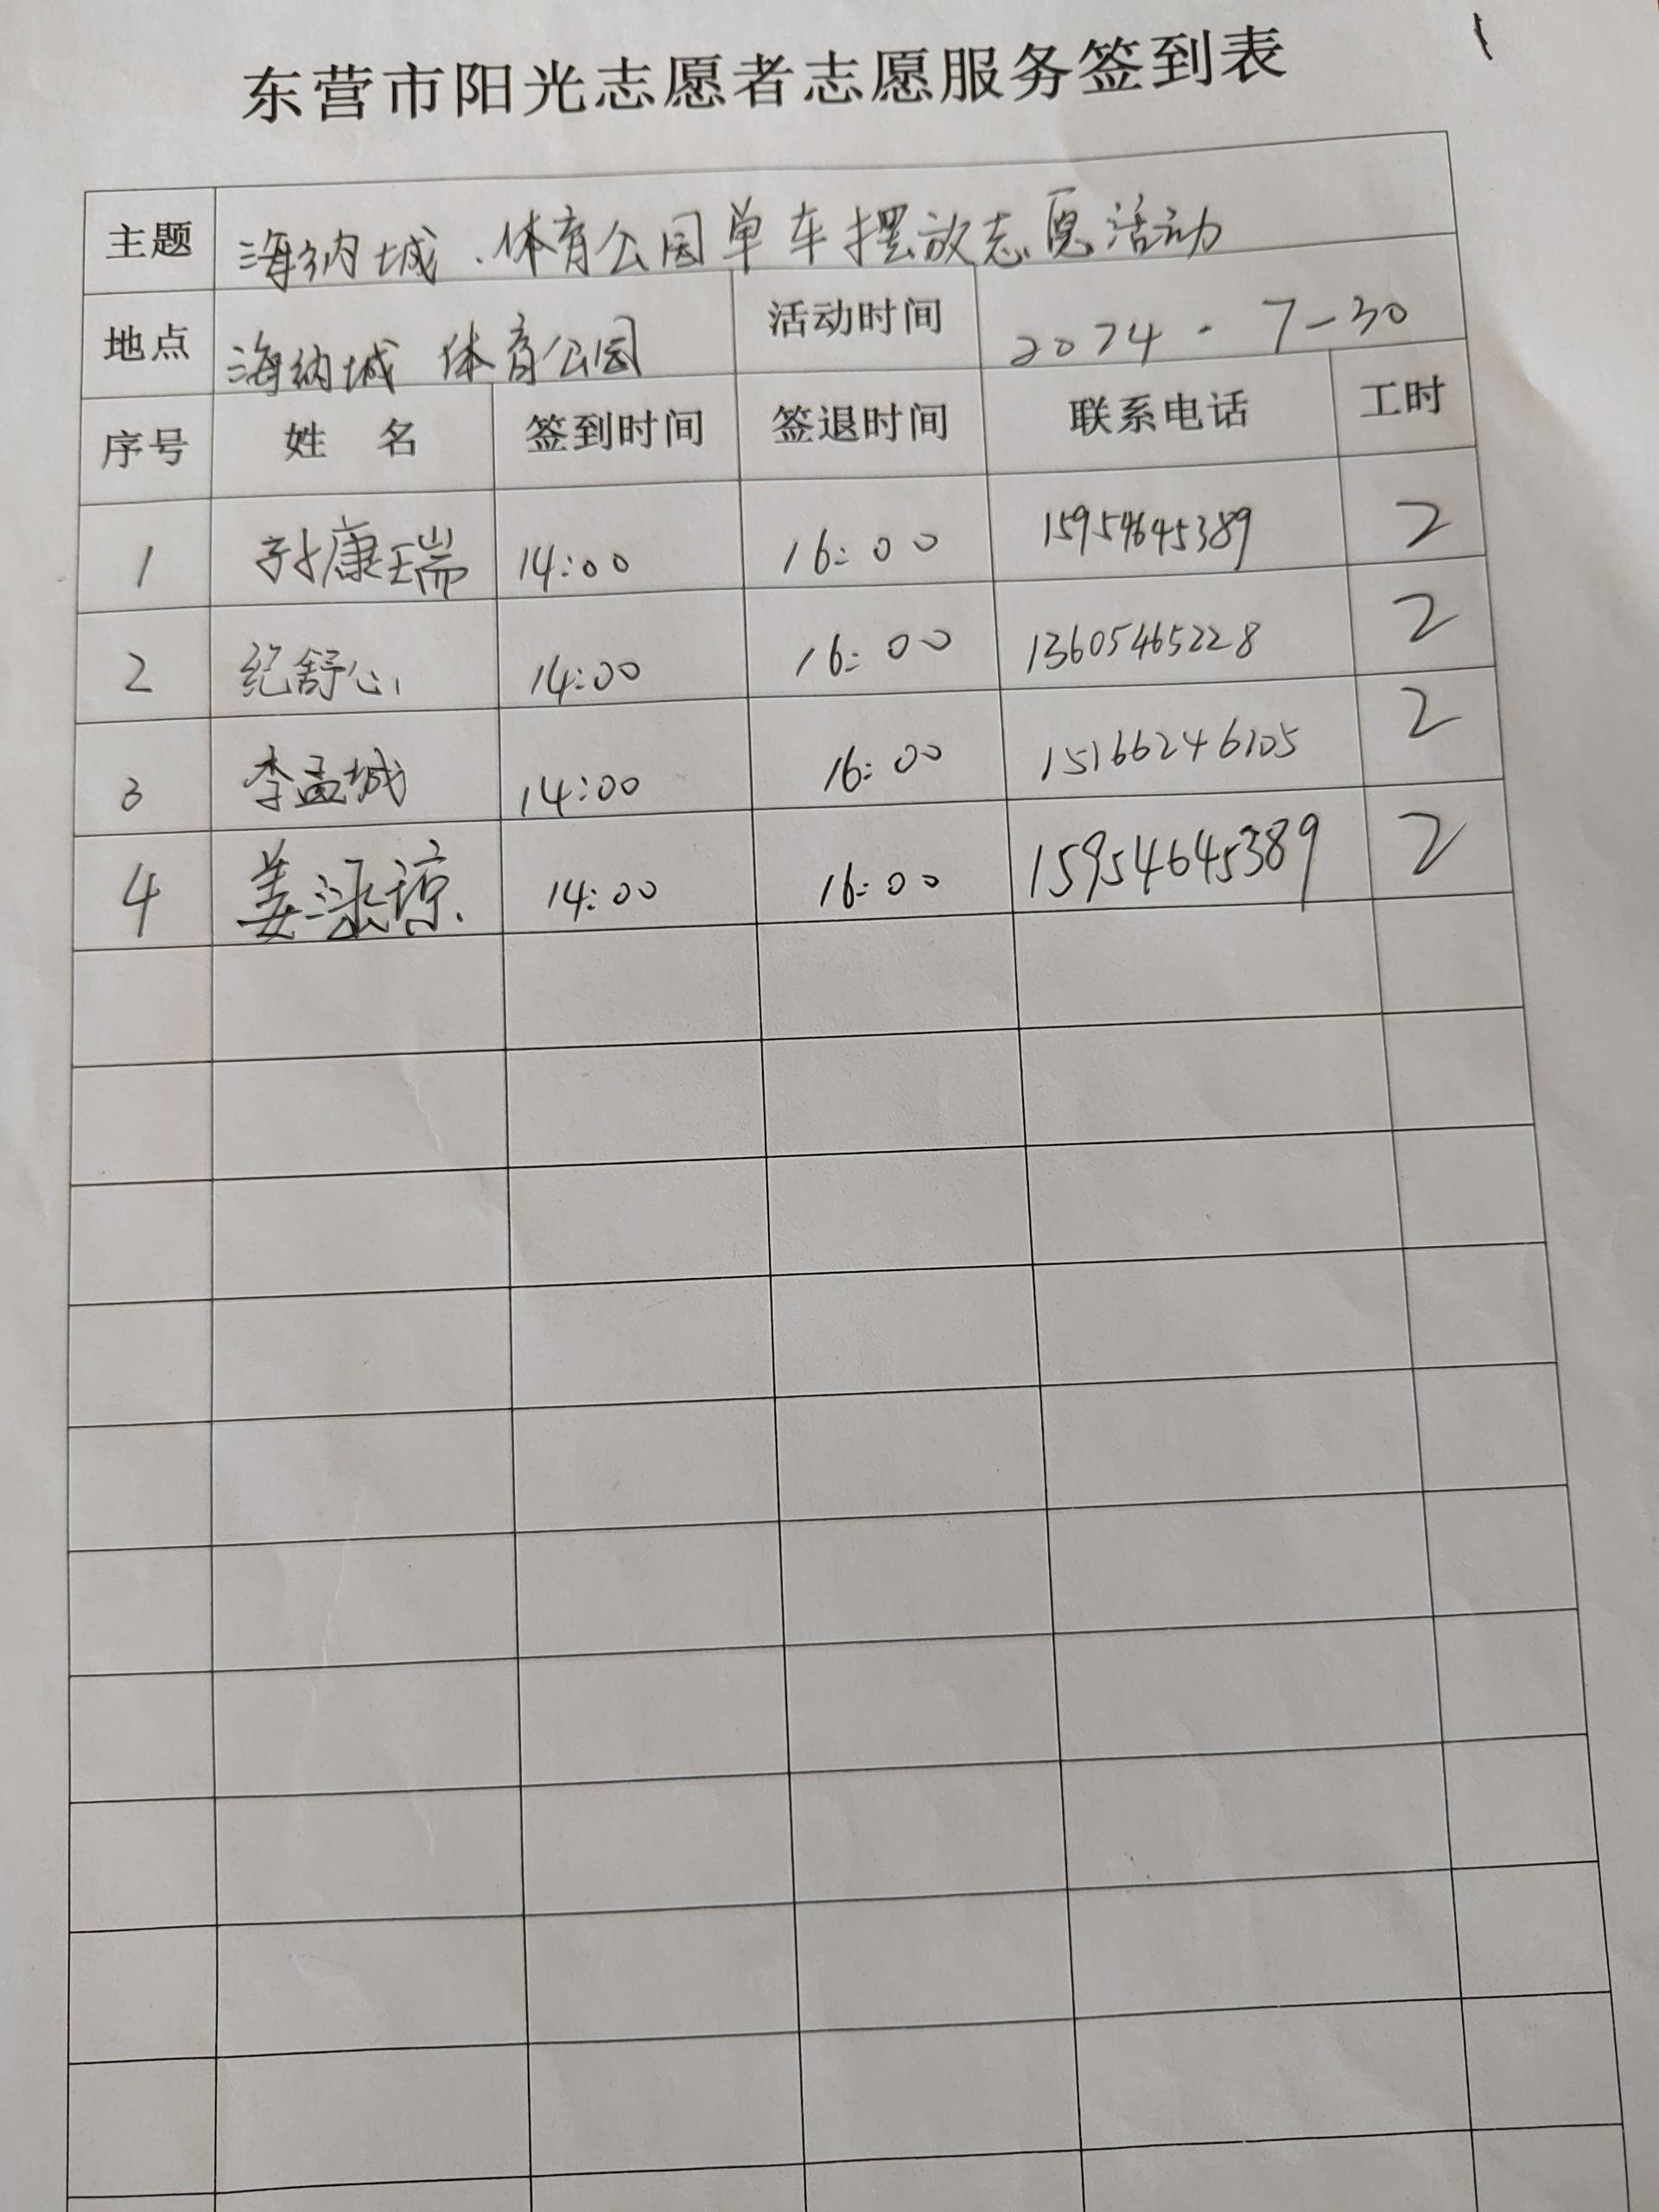 东营市阳光志愿者志愿服务签到表
主题 海纳城.体育公园单车摆放志愿活动
地点 海纳城 体育公园 活动时间 2024.7-30
序号 姓 名 签到时间 签退时间 联系电话 工时
1 康瑞 14:00 16:00 15954645389 2
2 纪舒心 14:00 16:00 13605465228 2
3 李孟城 14:00 16:00 15166246105 2
4 姜琼 14:00 16:00 15954645389 2